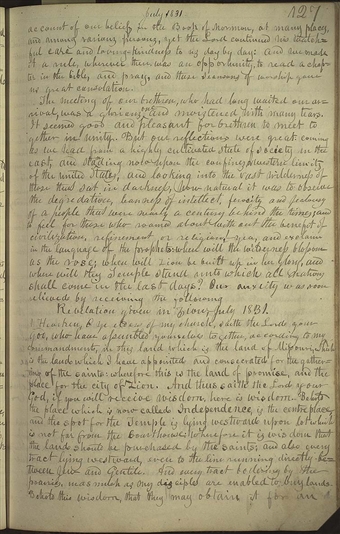 July 1831. 127
account of our belief in the Book of Mormon, at many places,
and among various persons, yet the Lord continued his watch-
ful care and loving-kindness to us day by day: And we made
it a rule, wherever there was an opportunity, to read a chap-
ter in the bible, and pray, and these seasons of worship gave
us great consolation.
The meeting of our brethren, who had long waited our ar-
rival, was a glorious, and moistened with many tears.
It seemed good and pleasant for brethren to meet to-
gether in Unity. But our reflections were great coming
as we had from a highly cultivated State of society in the
east, and standing now upon the confines,
of the united States, and looking into the vast wilderness of
those that sat in darkness, how natural it was to observe
the degradation, leanness of intellect, ferocity and jealousy
of a people that were nearly a century behind the times; and
to feel for those who roamed about without the benefit of
civilization, refinement, or religion; yea, and exclaim
in the language of the prophets: when will the wilderness blossom
as the rose; when will Zion be built up in her glory, and
where will thy Temple stand unto which all Nations
shall come in the last days? Our anxiety was soon
relieved by receiving the following
Revelation given in Zion July 1831.
Hearken, O ye elders of my church, saith the Lord your
God, who have assembled yourselves together, according to my
commandments, in this land which is the land of Missouri, which
is the land which I have appointed and consecrated for the gather-
ing of the saints: wherefore this is the land of promise, and the
place for the city of Zion. And thus saith the Lord your
God, if you will receive wisdom, here is wisdom. Behold
the place which is now called Independence, is the centre place,
and the spot for the Temple is lying westward upon a lot which
is not far from the court house: wherefore it is wisdom that
the land should be purchased by the saints; and also every
tract lying westward, even to the line running directly be-
tween Jew and Gentile. And every tract bordering by the
prairies, inasmuch as my disciples are enabled to buy lands.
Behold this is wisdom, that they may obtain it for an